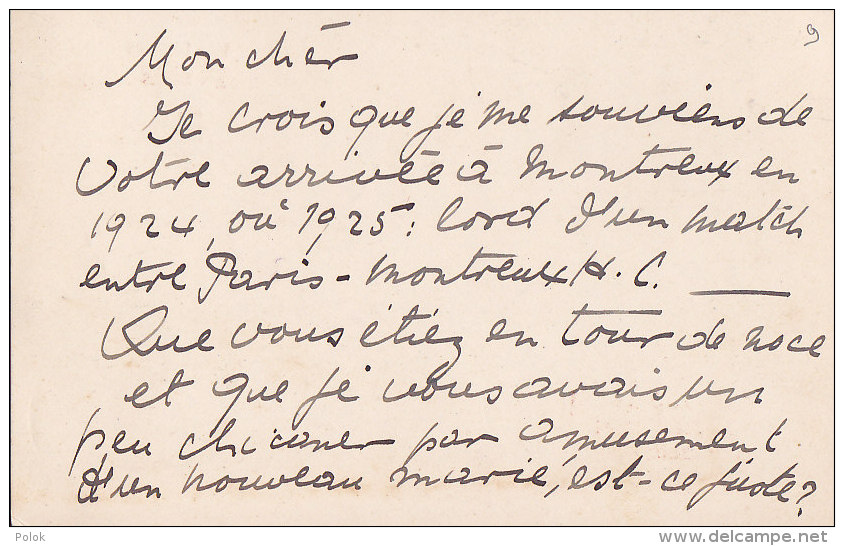 9
Mon cher
Je crois que je me souviens de
votre arrivée à Montreux en
1924, où 1925: lord d'un match
entre Paris-Montreux H. C. ___
Que vous étiez en tour de noce
et que je vous avais un
peu chicaner par amusement
d'un nouveau marié, est-ce juste?
Polok
www.delcampe.net